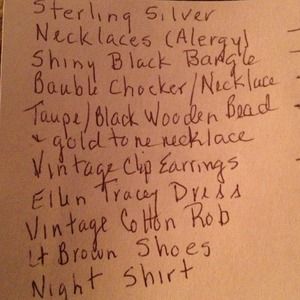 Sterling Silver
Necklaces (Alergy)
Shiny Black Bangle
Bauble Chocker/Necklace
Taupe/Black Wooden Bead
& gold tone necklace
Vintage Clip Earrings
Ellen Tracey Dress
Vintage Cotton Rob
Lt Brown Shoes
Night Shirt